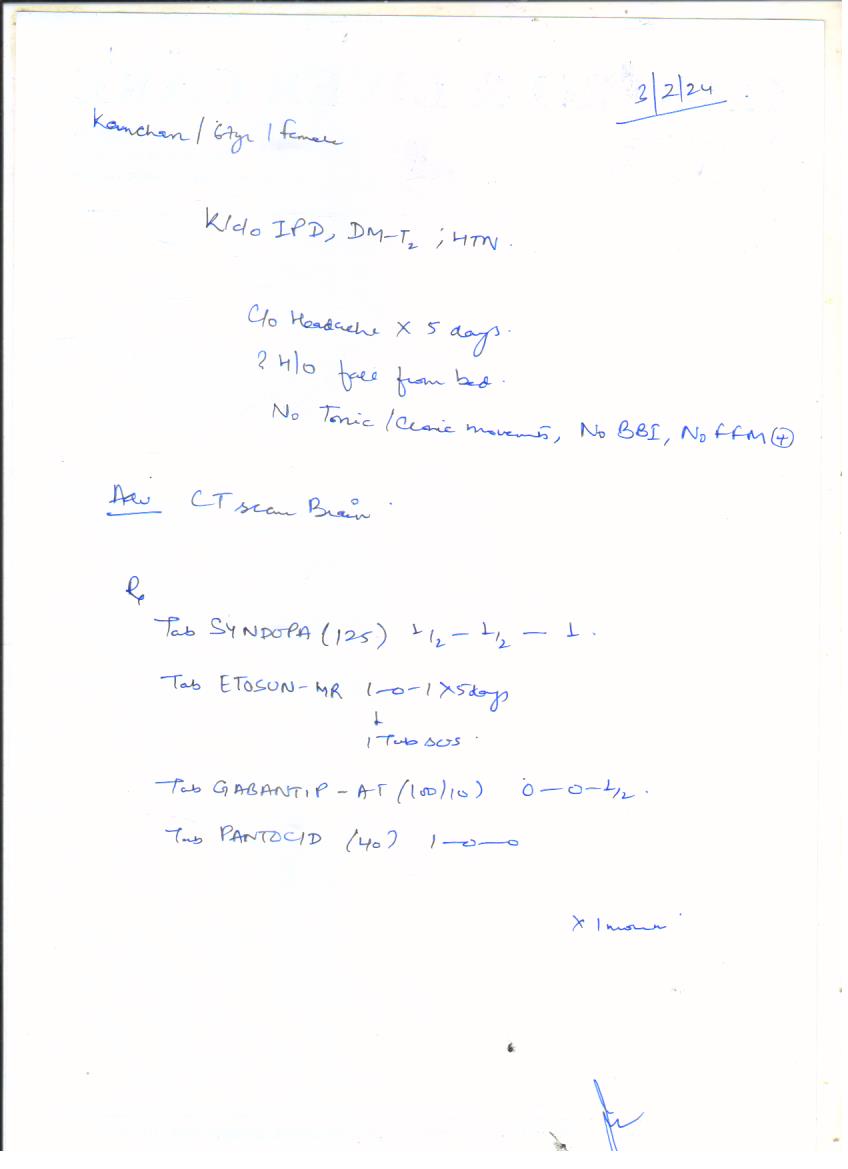 3/2/24
Kanchan / 67yr / female
K/c/o IPD, DM-T2 ; HTN.
C/o Headache X 5 days.
? H/o fall from bed.
No Tonic / Clonic movements, No BBI, No FFM (+)
Adv CT scan Brain
Rx
Tab SYNDOPA (125) 1/2 - 1/2 - 1.
Tab ETOSUN-MR 1-0-1 X 5 days
↓
1 Tab SOS
Tab GABANTIP - AT (100/10) 0-0-1/2.
Tab PANTOCID (40) 1-0-0
X 1 month